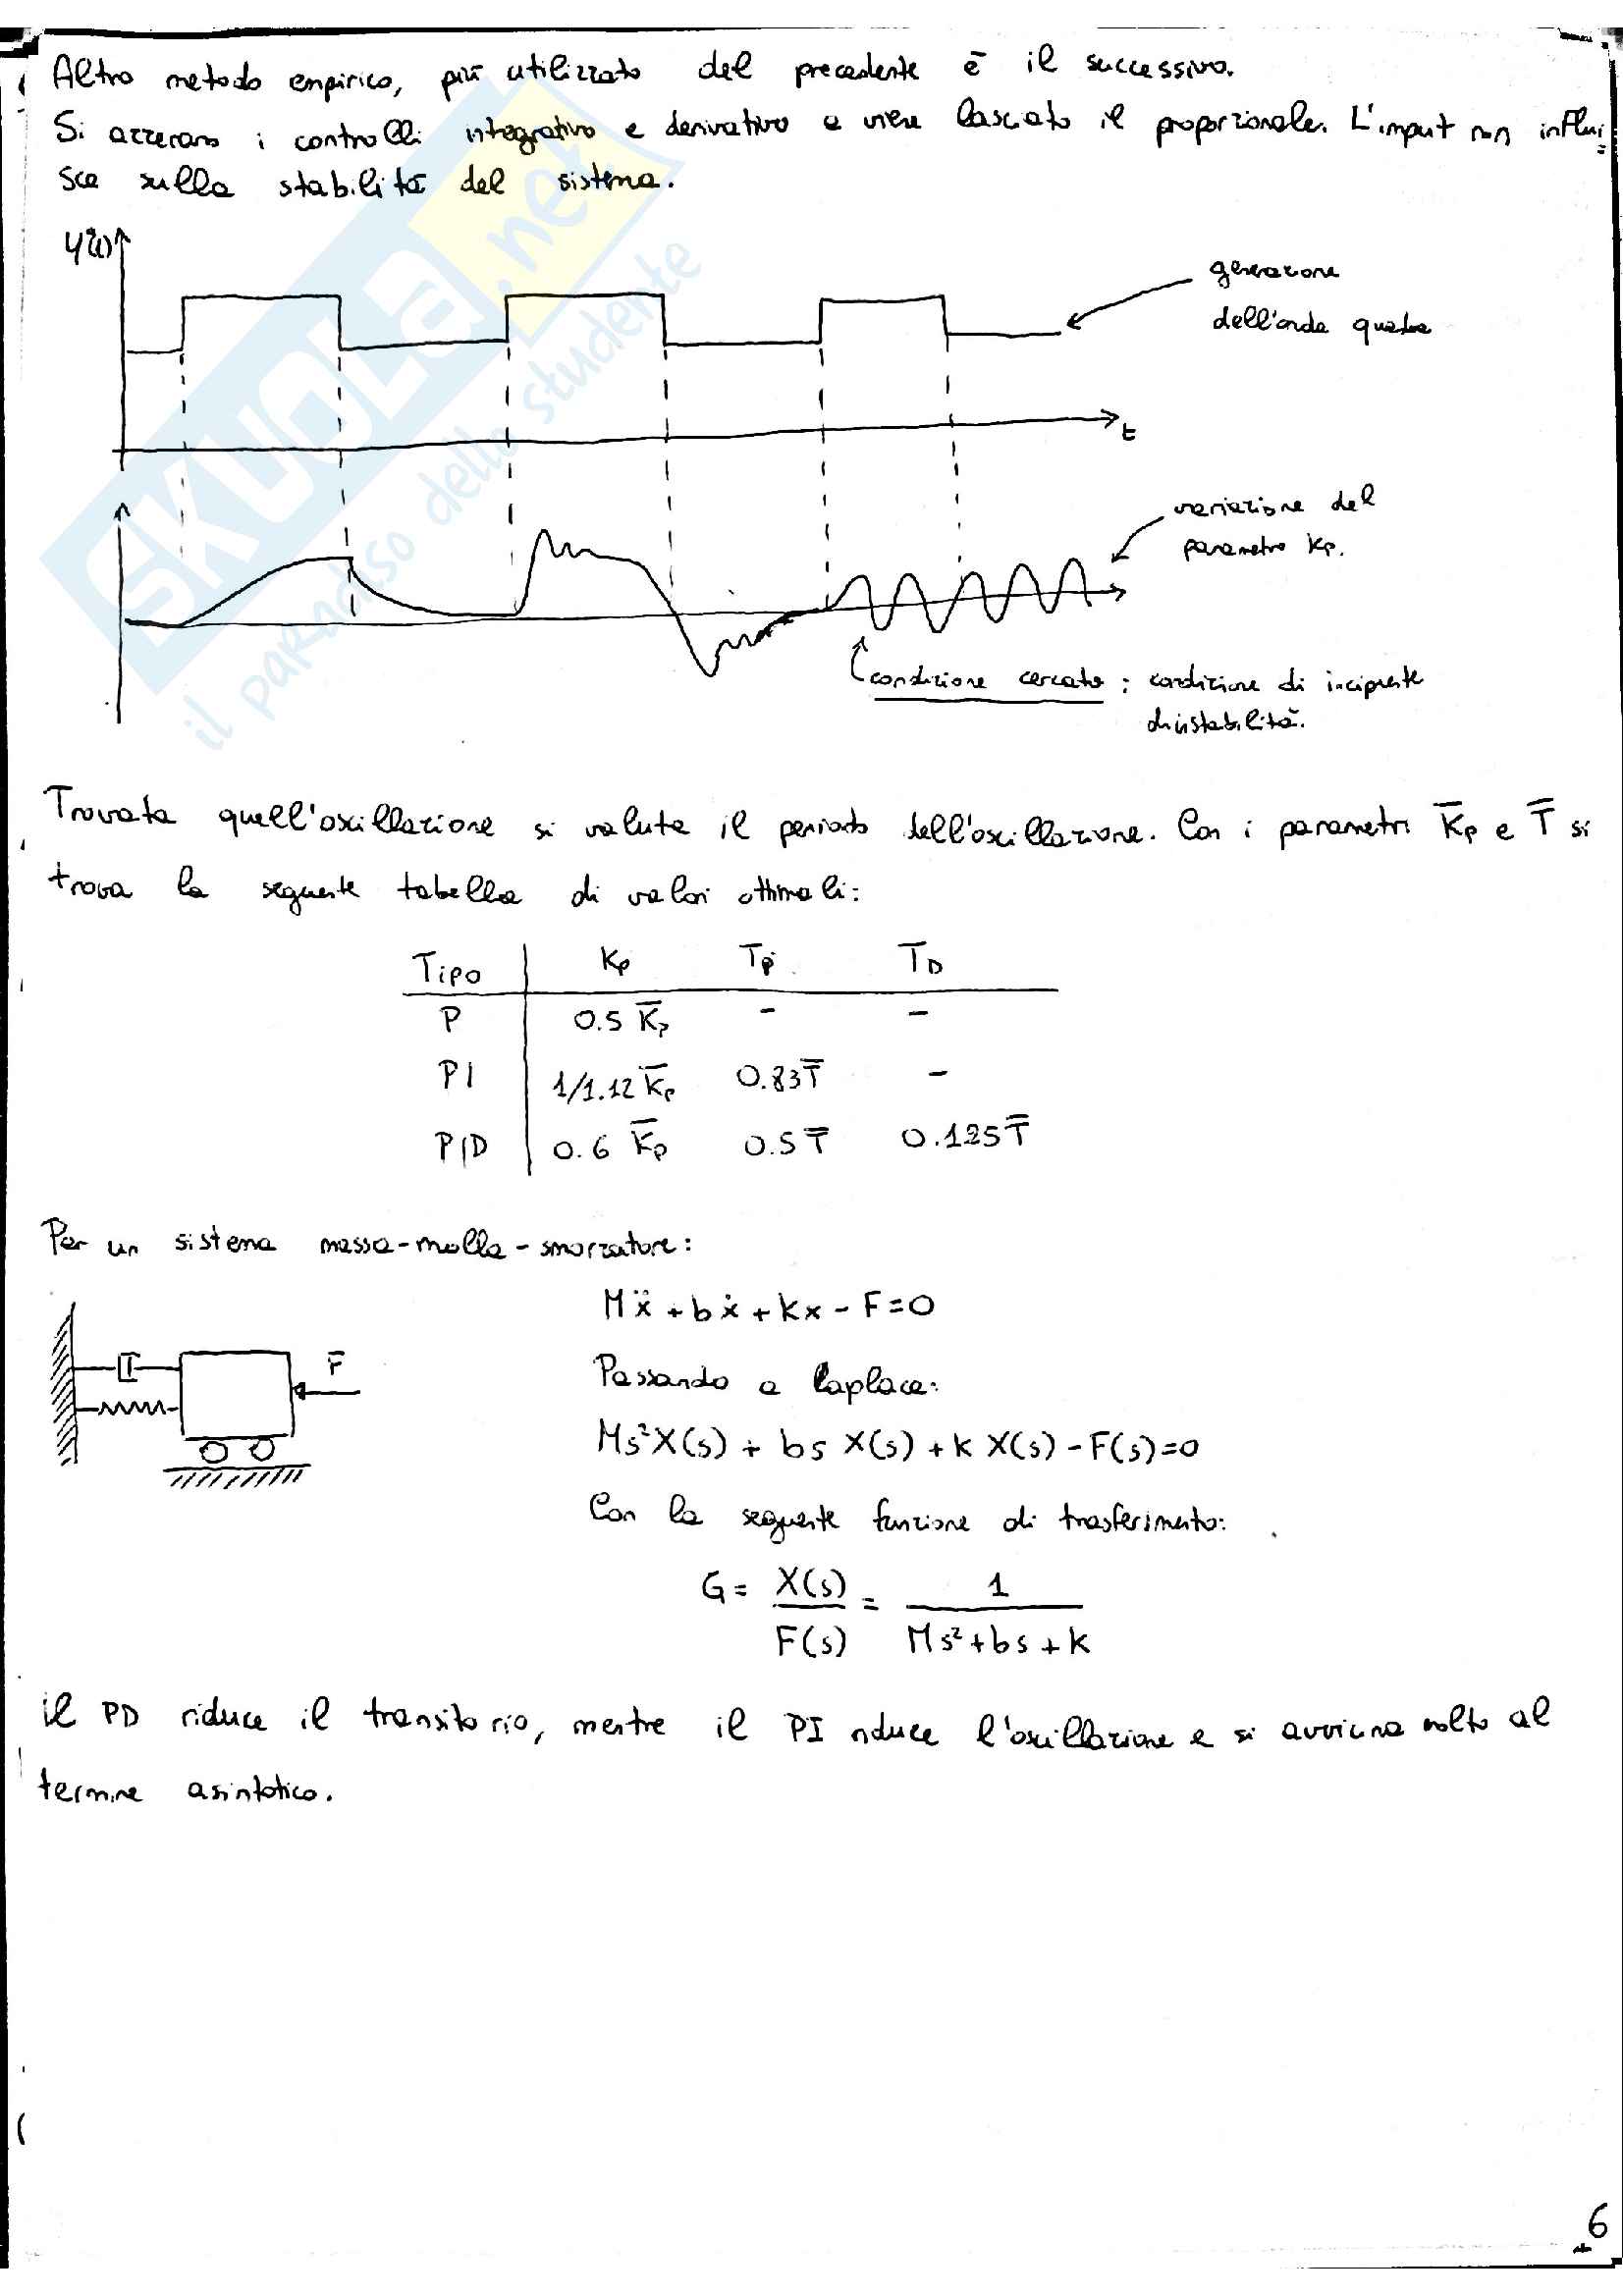 Altro metodo empirico, più utilizzato del precedente è il successivo.
Si azzerano i controlli integrativo e derivativo e viene lasciato il proporzionale. L'imput non influi
sce sulla stabilità del sistema.
generazione
dell'onda quadra
t
variazione del
parametro Kp.
condizione cercata: condizione di incipiente
di instabilità.
Trovata quell'oscillazione si valuta il periodo dell'oscillazione. Con i parametri K̅p e T̅ si
trova la seguente tabella di valori ottimali:
Tipo Kp Ti TD
P 0.5 K̅p - -
PI 1/1.12 K̅p 0.83T̅ -
PID 0.6 K̅p 0.5T̅ 0.125T̅
Per un sistema massa-molla-smorzatore:
Mẍ + bẋ + kx - F = 0
F
Passando a Laplace:
Ms²X(s) + bs X(s) + k X(s) - F(s) = 0
Con la seguente funzione di trasferimento:
G = X(s)/F(s) = 1/(Ms² + bs + k)
il PD riduce il transitorio, mentre il PI riduce l'oscillazione e si avvicina molto al
termine asintotico.
6
SKUOLA.net
il paradiso dello studente